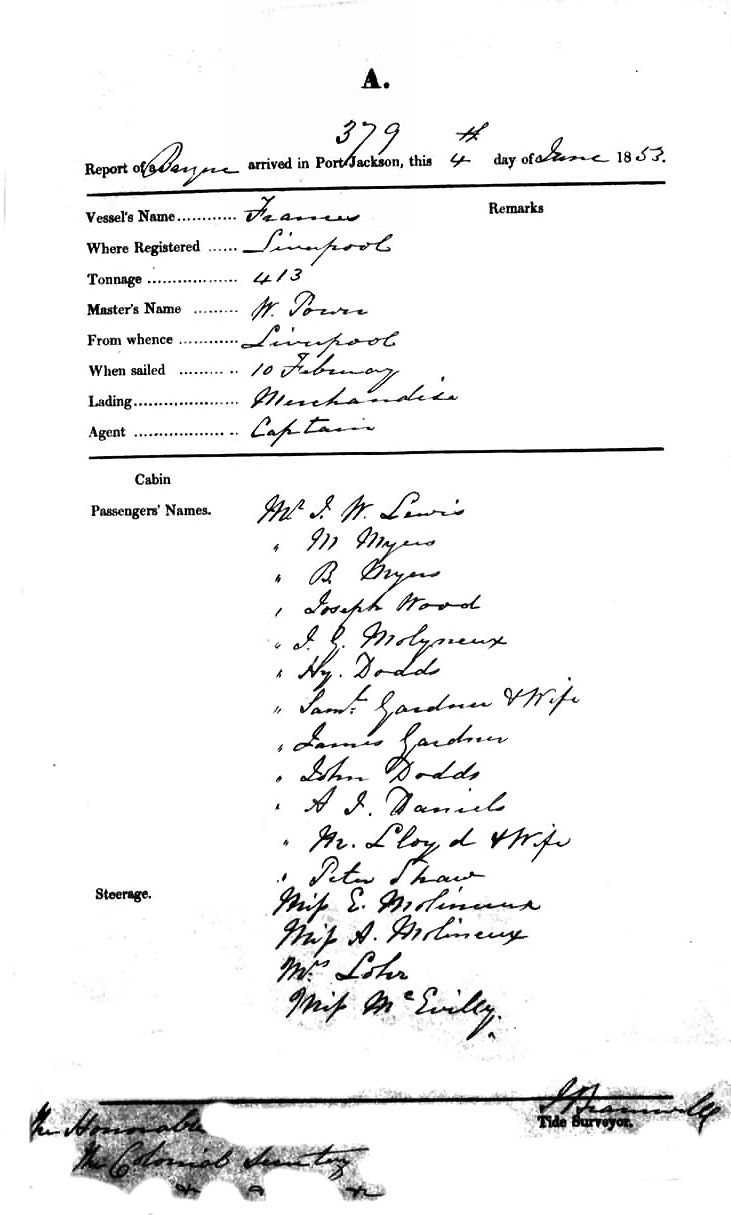 A.
379
Report of a Barque arrived in Port Jackson, this 4th day of June 1853.
Remarks
Vessel's Name............ Frances
Where Registered ...... Liverpool
Tonnage .................. 413
Master's Name ......... W. Town
From whence ............ Liverpool
When sailed ........... 10 February
Lading..................... Merchandise
Agent .................... Captain
Cabin
Passengers' Names. Mr J. W. Lewis
" M Myers
" B. Myers
" Joseph Wood
" J. G. Molyneux
" Hy. Dodds
" Saml. Gardner & Wife
" James Gardner
" John Dodds
" A J. Daniels
" Lloyd & Wife
" Peter Shaw
Steerage. Miss E. Molineux
Miss A. Molineux
Mrs Lohr
Miss McEvilly.
Tide Surveyor.
The Honorable
The Colonial Secretary